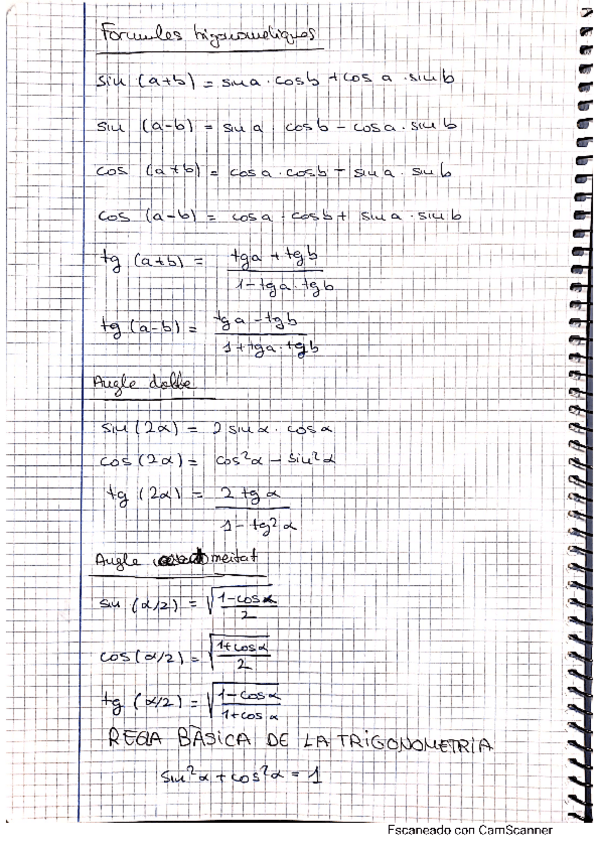 Formules trigonomètriques
sin (a+b) = sin a · cos b + cos a · sin b
sin (a-b) = sin a cos b - cos a · sin b
cos (a+b) = cos a · cos b - sin a · sin b
cos (a-b) = cos a · cos b + sin a · sin b
tg (a+b) = tg a + tg b / 1 - tg a · tg b
tg (a-b) = tg a - tg b / 1 + tg a · tg b
Angle doble
sin (2α) = 2 sin α · cos α
cos (2α) = cos²α - sin²α
tg (2α) = 2 tg α / 1 - tg² α
Angle meitat
sin (α/2) = √(1-cos α / 2)
cos (α/2) = √(1+cos α / 2)
tg (α/2) = √(1-cos α / 1+cos α)
REGLA BÀSICA DE LA TRIGONOMETRIA
sin²α + cos²α = 1
Escaneado con CamScanner